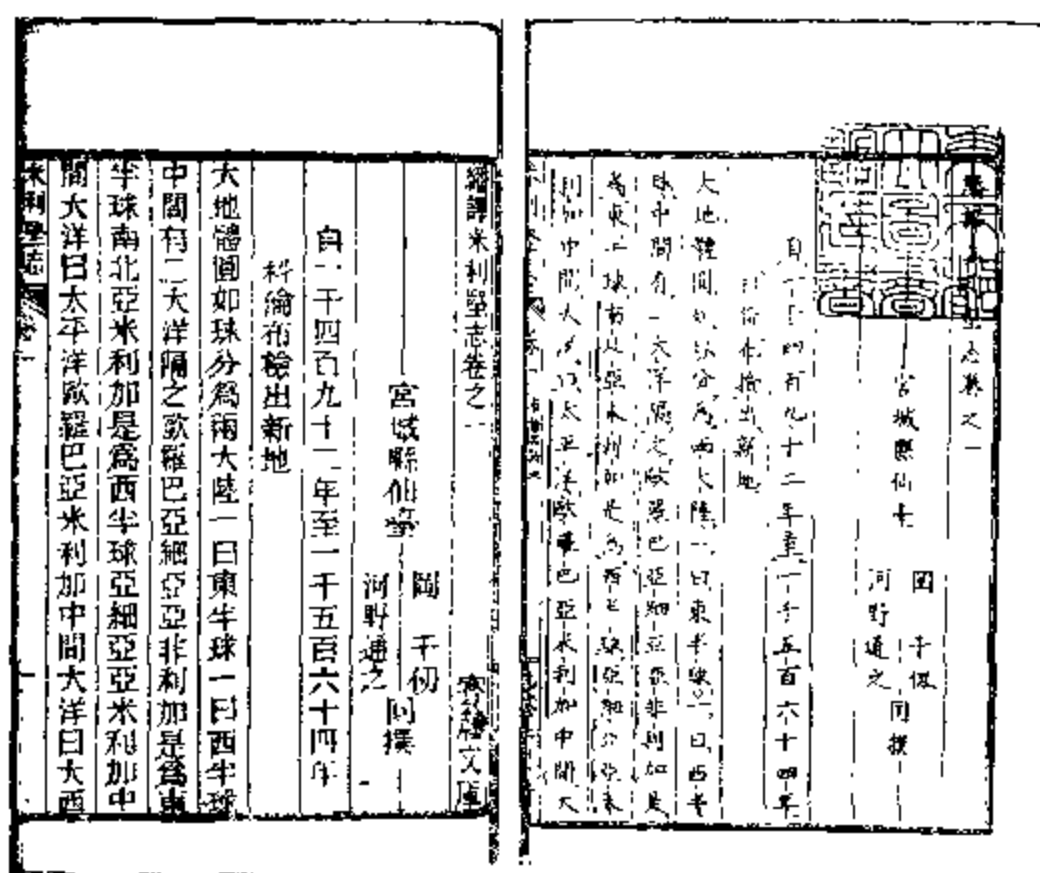 堅志卷之一
宮城縣仙臺 岡千仭
河野通之 同撰
自一千四百九十二年至一千五百六十四年
科倫布檢出新地
大地體圓如球分為兩大陸一曰東半球一曰西半
球中間有二大洋隔之歐羅巴亞細亞亞非利加是
為東半球南北亞米利加是為西半球亞細亞亞米
利加中間大洋曰太平洋歐羅巴亞米利加中間大
譯米利堅志卷之一
宮城縣仙臺 岡千仭
河野通之 同撰
自一千四百九十二年至一千五百六十四年
科倫布檢出新地
大地體圓如球分爲兩大陸一曰東半球一曰西半球
中間有二大洋隔之歐羅巴亞細亞亞非利加是爲東
半球南北亞米利加是爲西半球亞細亞亞米利加中
間大洋曰太平洋歐羅巴亞米利加中間大洋曰大西
米利堅志 卷一